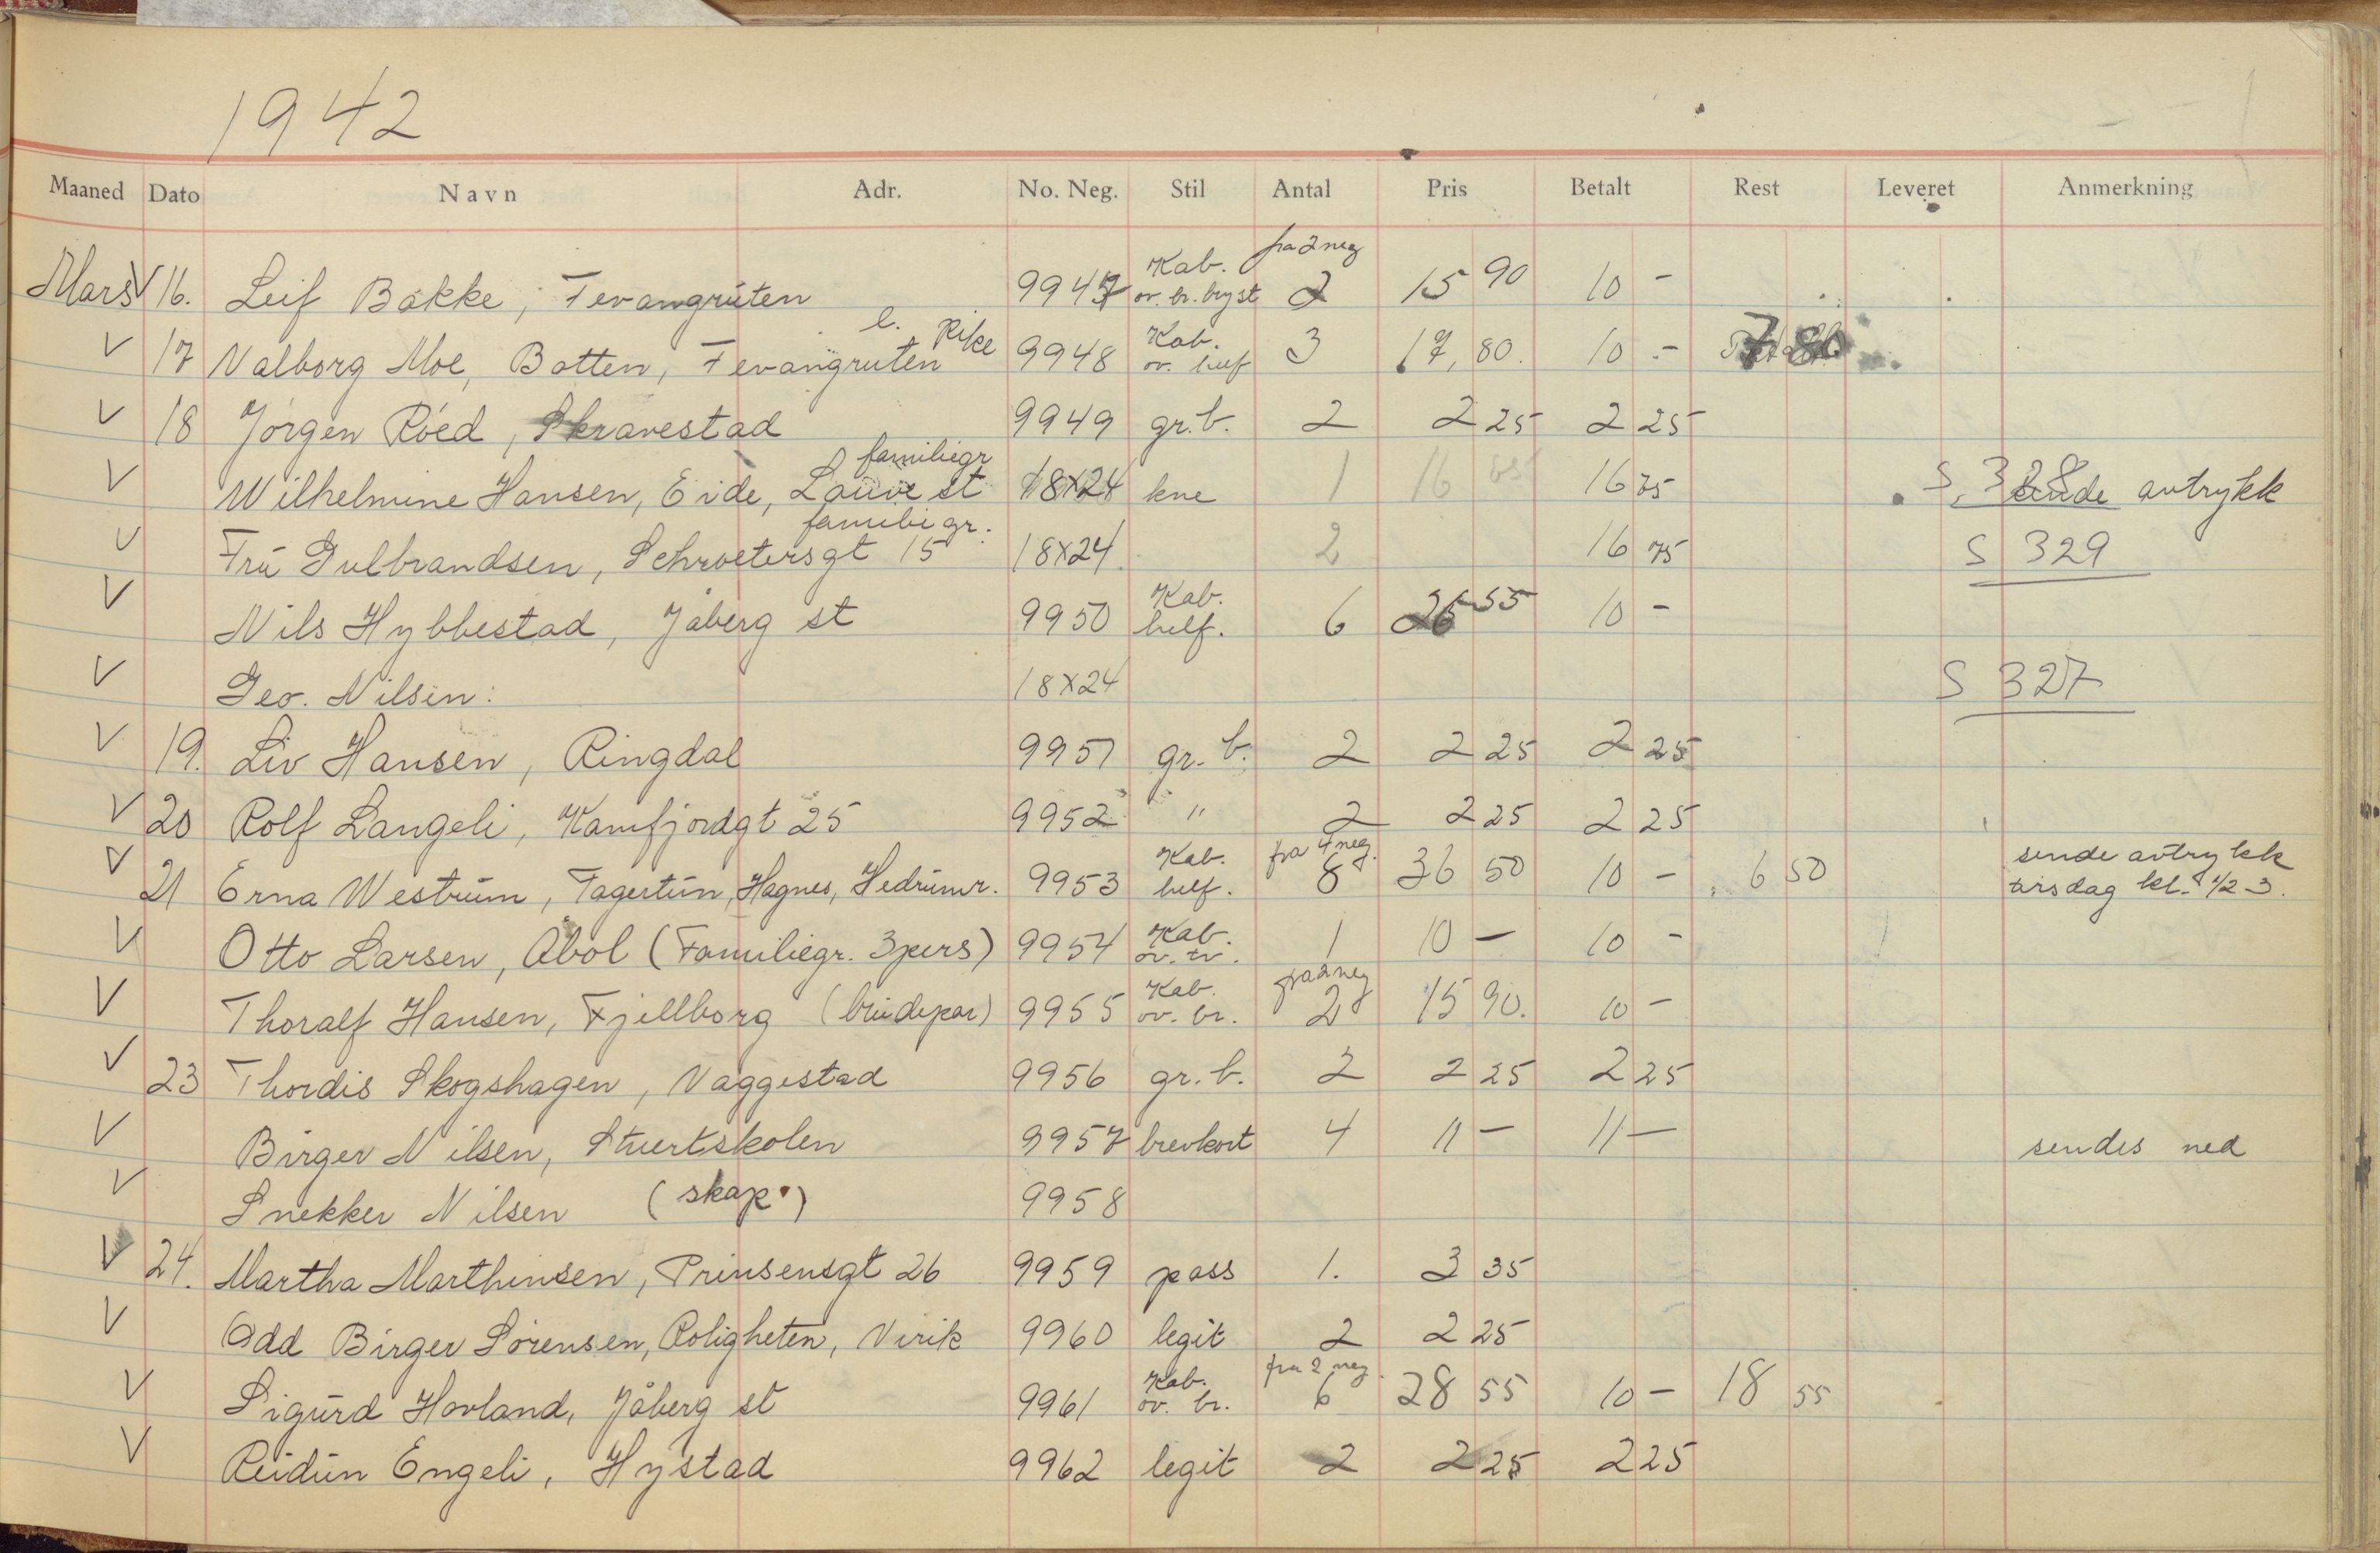 1942
Maaned Dato Navn Adr. No. Neg. Stil Antal Pris Betalt Rest Leveret Anmerkning
Mars V 16. Leif Bakke, Tevangruten 9947 Kab. ov. br. bryst fra 2 neg 2 15 90 10 -
V 17 Valborg Moe, Botten, Tevangruten 9948 Kab. ov. helf 3 17,80. 10 - 7 80
V 18 Jørgen Röed, Skravestad 9949 gr. b. 2 2 25 2 25
V Wilhelmine Hansen, Eide, Lauve st familiegr 18X24 kne 1 16 16 75 S. 328 avtrykk
V Frü Gulbrandsen, Schroetersgt 15 familiegr. 18X24 2 16 75 S 329
V Nils Hybbestad, Jåberg st 9950 Kab. helf. 6 26 55 10 -
V Geo. Nilsen: 18X24 S 327
V 19. Liv Hansen, Ringdal 9951 gr. b. 2 2 25 2 25
V 20 Rolf Langeli, Kamfjordgt 25 9952 " 2 2 25 2 25
V 21 Erna Westrüm, Fagertün, Hagnes, Hedrümr. 9953 Kab. helf. fra 4 neg. 8 36 50 10 - 6 50 sende avtrykk tirsdag kl. 1/2 3.
V Otto Larsen, Åbol (Familiegr. 3 pers) 9954 Kab. ov. tv. 1 10 - 10 -
V Thoralf Hansen, Fjellborg (brüdepar) 9955 Kab. ov. br. fra 2 neg 2 15 90. 10 -
V 23 Thordis Skogshagen, Vaggestad 9956 gr. b. 2 2 25 2 25
V Birger Nilsen, Stuertskolen 9957 brevkort 4 11 - 11 - sendes ned
V Snekker Nilsen (skap.) 9958
V 24. Martha Marthinsen, Prinsensgt 26 9959 pass 1. 3 35
V Odd Birger Sörensen, Roligheten, Virik 9960 legit 2 2 25
V Sigürd Hovland, Jåberg st 9961 Kab. ov. br. fra 2 neg. 6 28 55 10 - 18 55
V Reidün Engeli, Hystad 9962 legit 2 2 25 2 25